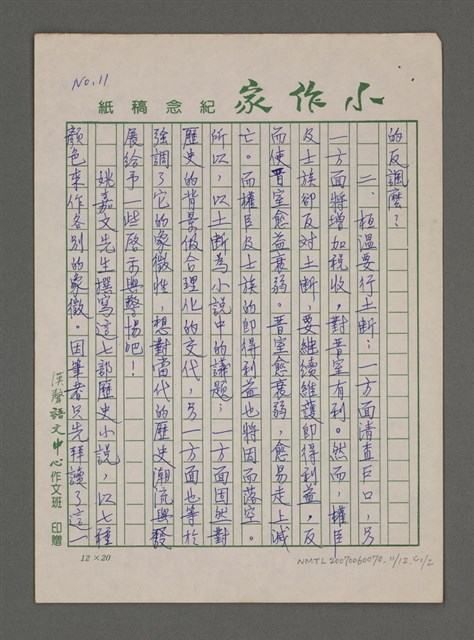 No. 11
小作家 紀念稿紙
的反諷麼？
二、桓溫要行土斷：一方面清查戶口，另
一方面將增加稅收，對晉室有利。然而，權臣
及士族卻反對土斷，要繼續維護即得利益，反
而使晉室愈益衰弱。晉室愈衰弱，愈易走上滅
亡。而權臣及士族的即得利益也將因而落空。
所以，以土斷為小說中的議題：一方面固然對
歷史的背景做合理化的交代，另一方面也等於
強調了它的象徵性，想對當代的歷史潮流與發
展給予一些啓示與警惕吧！
姚嘉文先生撰寫這七部歷史小說，以七種
顏色來作各別的象徵。因筆者只先拜讀了這一
漢聲語文中心作文班 印贈
12×20
NMTL20070060070. 11/12.G1/2